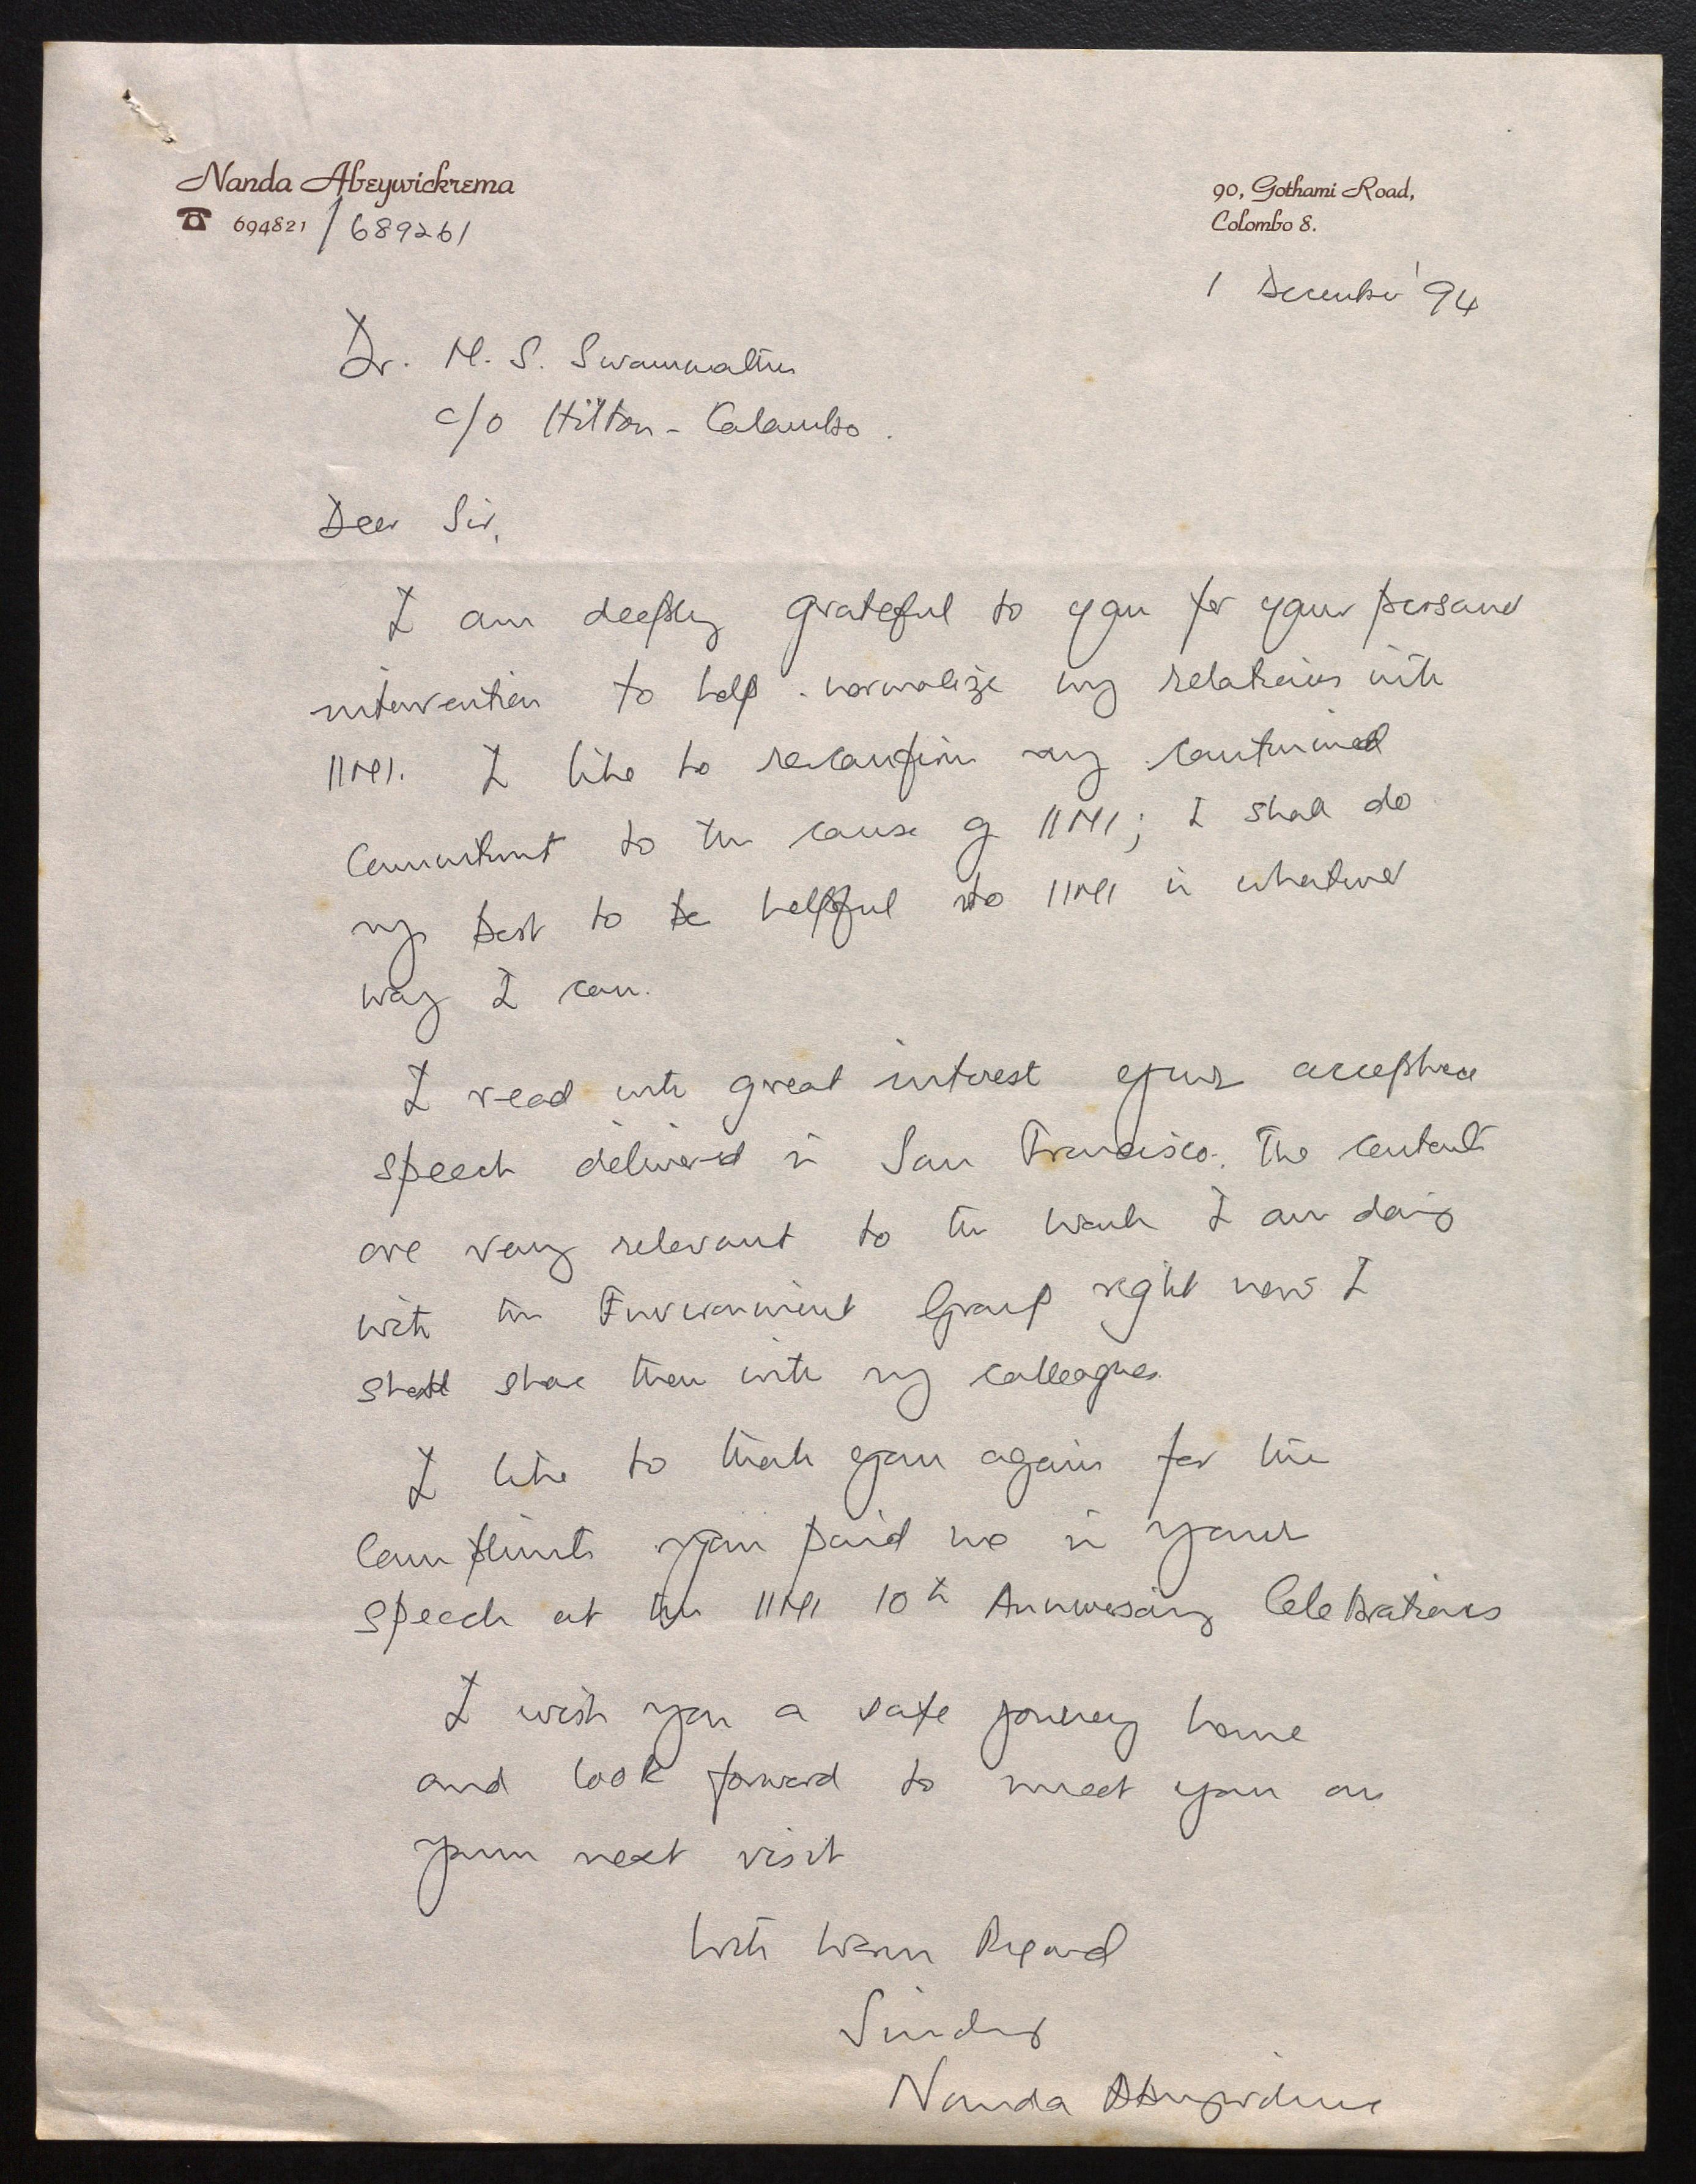 Nanda Abeywickrema
☎ 694821 / 689261
90, Gothami Road,
Colombo 8.
1 December '94
Dr. M. S. Swaminathan
c/o Hilton - Colombo.
Dear Sir,
I am deeply grateful to you for your personal
intervention to help normalize my relations with
IIMI. I like to reconfirm my continued
Commitment to the cause of IIMI; I shall do
my best to be helpful to IIMI in whatever
way I can.
I read with great interest your acceptance
speech delivered in San Francisco. The contents
are very relevant to the work I am doing
with the Environment Group right now I
shall share them with my colleagues.
I like to thank you again for the
Compliments you paid me in your
speech at the IIMI 10th Anniversary Celebrations
I wish you a safe journey home
and look forward to meet you on
your next visit
With Warm Regard
Sincerely
Nanda Abeywickrema